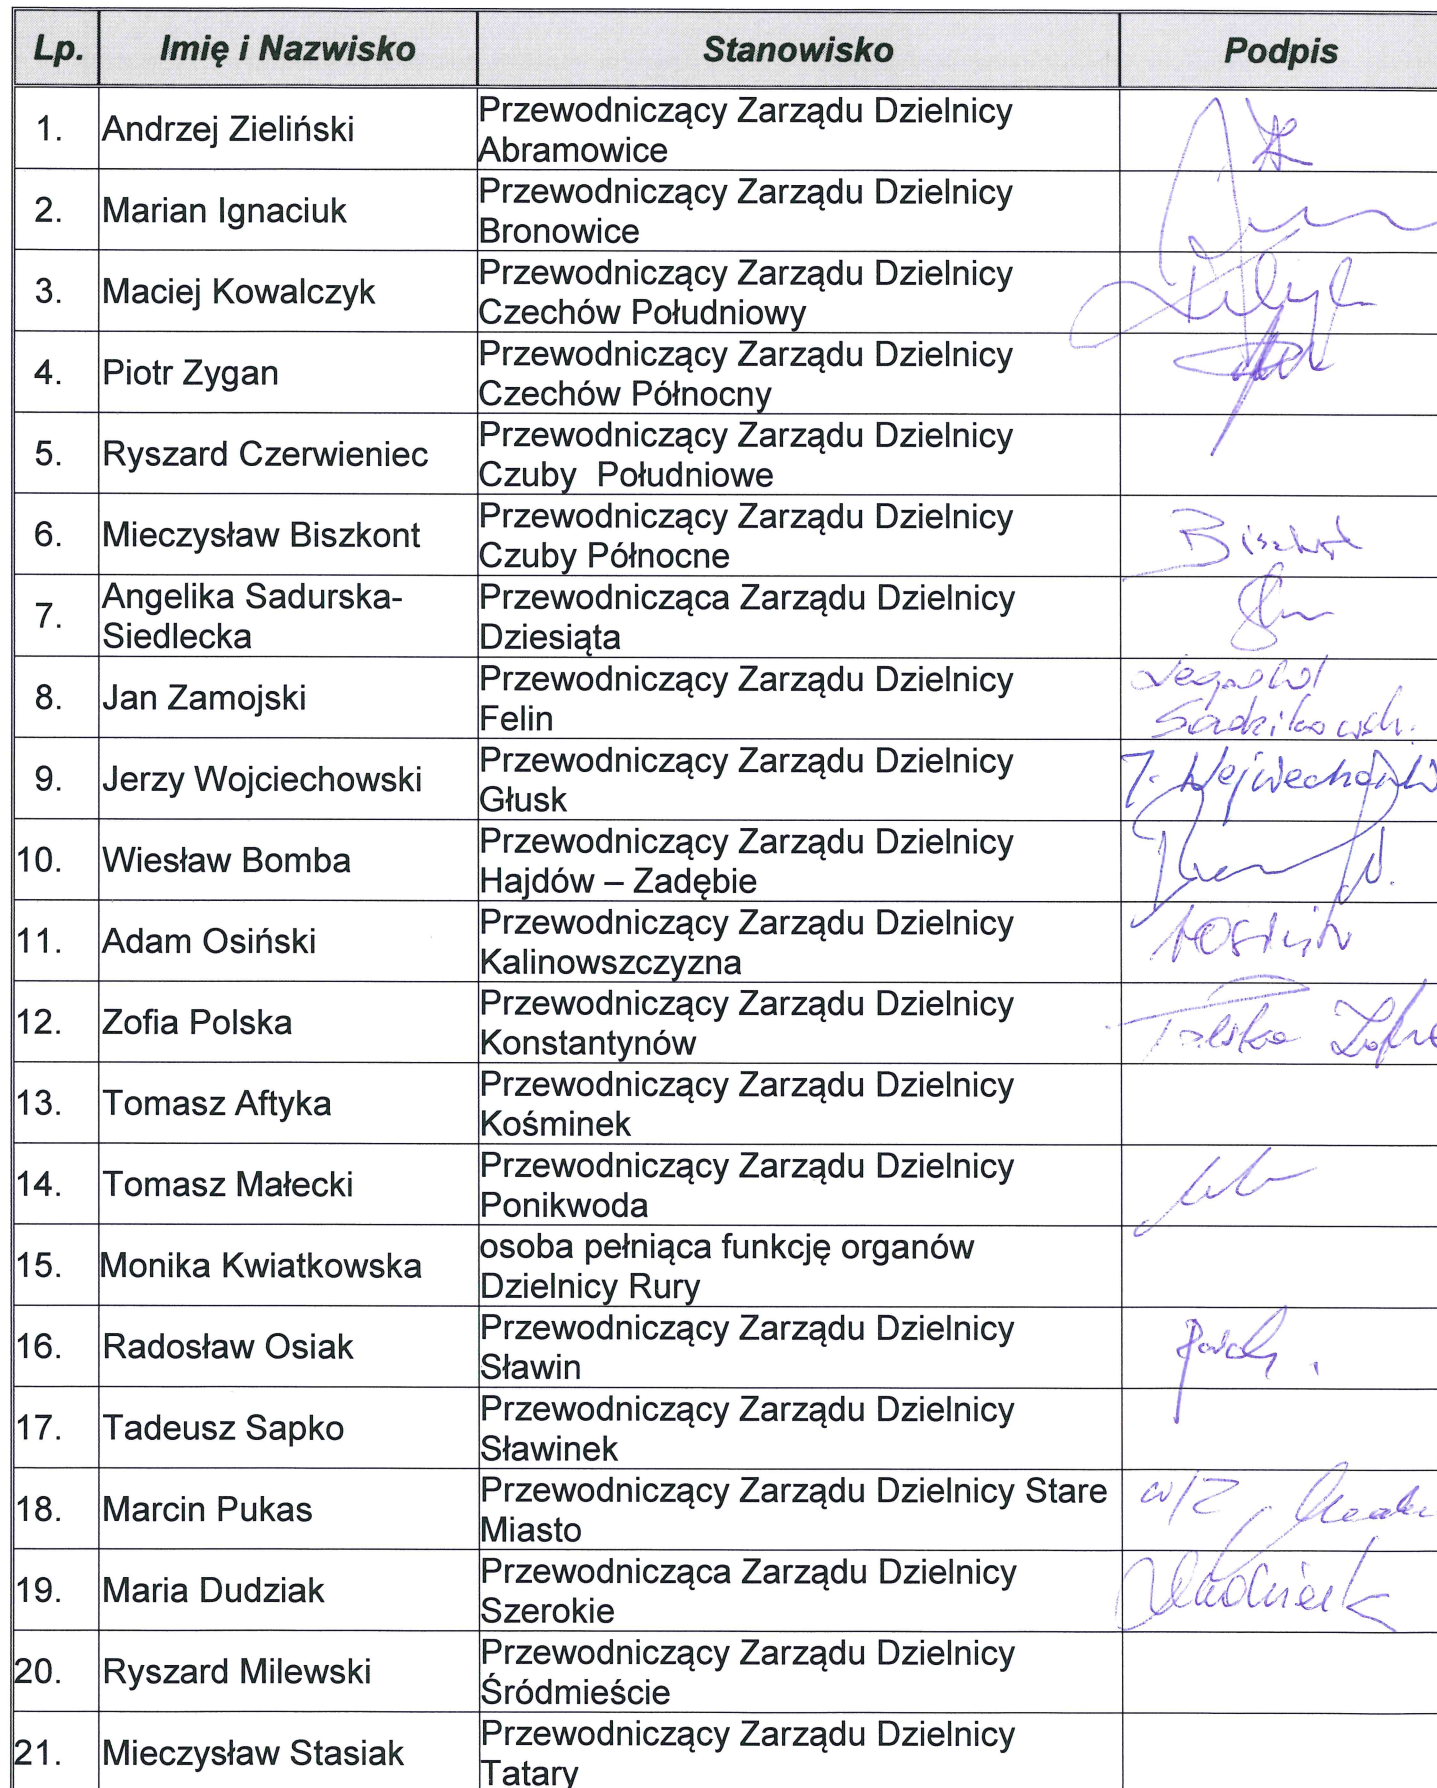 Lp. Imię i Nazwisko Stanowisko Podpis
1. Andrzej Zieliński Przewodniczący Zarządu Dzielnicy
Abramowice
2. Marian Ignaciuk Przewodniczący Zarządu Dzielnicy
Bronowice
3. Maciej Kowalczyk Przewodniczący Zarządu Dzielnicy
Czechów Południowy
4. Piotr Zygan Przewodniczący Zarządu Dzielnicy
Czechów Północny
5. Ryszard Czerwieniec Przewodniczący Zarządu Dzielnicy
Czuby Południowe
6. Mieczysław Biszkont Przewodniczący Zarządu Dzielnicy Biszkont
Czuby Północne
7. Angelika Sadurska- Przewodnicząca Zarządu Dzielnicy
Siedlecka Dziesiąta
8. Jan Zamojski Przewodniczący Zarządu Dzielnicy
Felin
9. Jerzy Wojciechowski Przewodniczący Zarządu Dzielnicy J. Wojciechowski
Głusk
10. Wiesław Bomba Przewodniczący Zarządu Dzielnicy
Hajdów – Zadębie
11. Adam Osiński Przewodniczący Zarządu Dzielnicy
Kalinowszczyzna
12. Zofia Polska Przewodniczący Zarządu Dzielnicy Polska Zofia
Konstantynów
13. Tomasz Aftyka Przewodniczący Zarządu Dzielnicy
Kośminek
14. Tomasz Małecki Przewodniczący Zarządu Dzielnicy
Ponikwoda
15. Monika Kwiatkowska osoba pełniąca funkcję organów
Dzielnicy Rury
16. Radosław Osiak Przewodniczący Zarządu Dzielnicy
Sławin
17. Tadeusz Sapko Przewodniczący Zarządu Dzielnicy
Sławinek
18. Marcin Pukas Przewodniczący Zarządu Dzielnicy Stare w/z
Miasto
19. Maria Dudziak Przewodnicząca Zarządu Dzielnicy
Szerokie
20. Ryszard Milewski Przewodniczący Zarządu Dzielnicy
Śródmieście
21. Mieczysław Stasiak Przewodniczący Zarządu Dzielnicy
Tatary